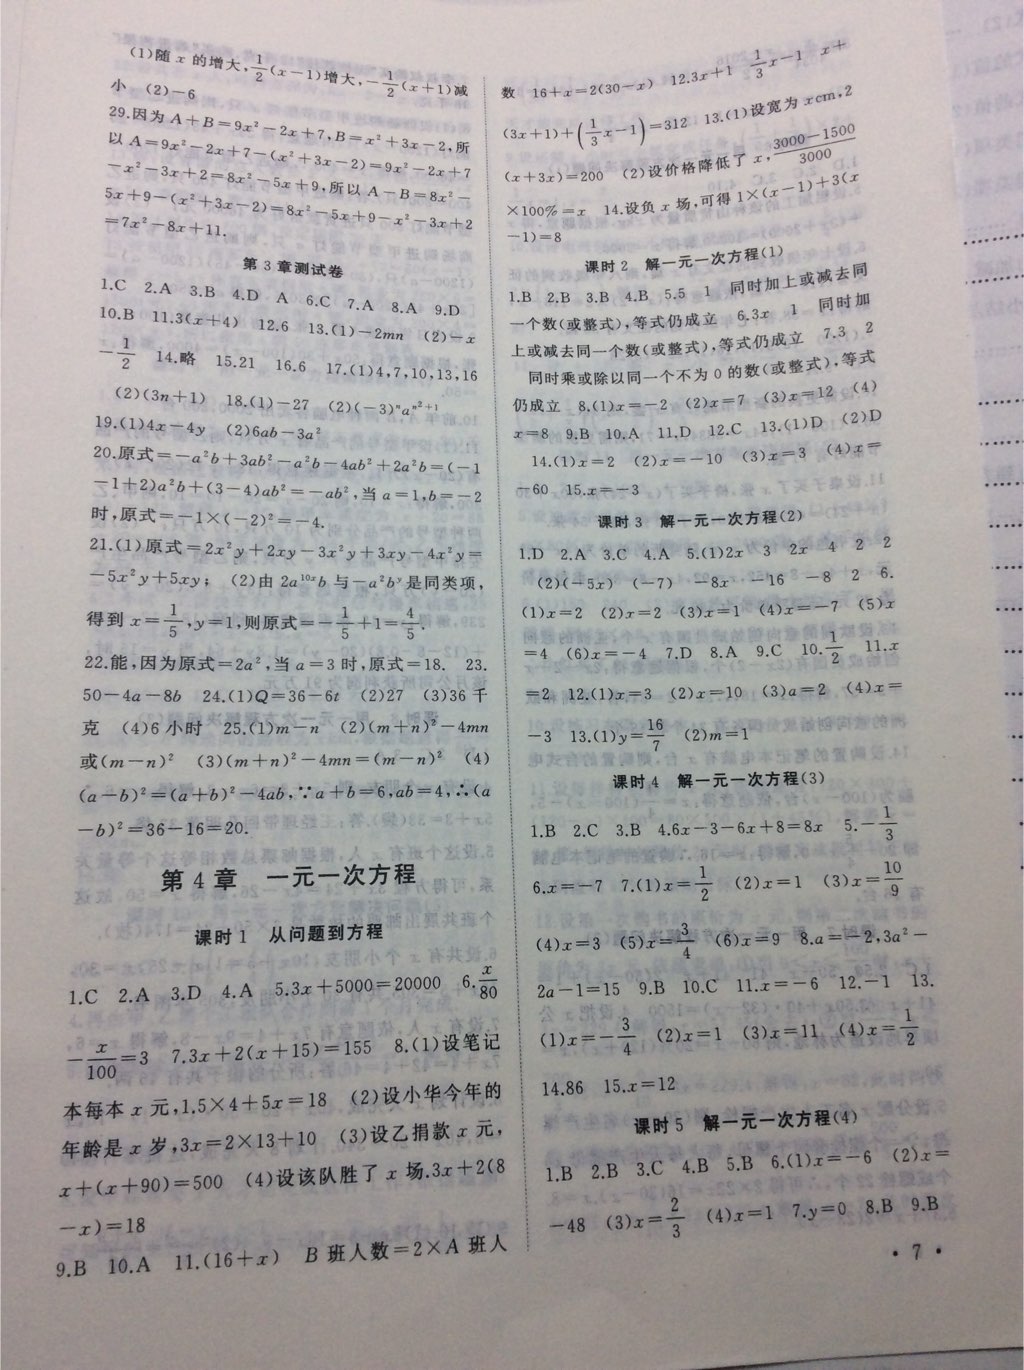 (1)随 x 的增大,1/2(x-1)增大,-1/2(x+1)减
小 (2)-6
29.因为 A+B=9x²-2x+7,B=x²+3x-2,所
以 A=9x²-2x+7-(x²+3x-2)=9x²-2x+7
-x²-3x+2=8x²-5x+9,所以 A-B=8x²-
5x+9-(x²+3x-2)=8x²-5x+9-x²-3x+2
=7x²-8x+11.
第 3 章测试卷
1.C 2.A 3.B 4.D A 6.C 7.A 8.A 9.D
10.B 11.3(x+4) 12.6 13.(1)-2mn (2)-x
-1/2 14.略 15.21 16.6 17.(1)4,7,10,13,16
(2)(3n+1) 18.(1)-27 (2)(-3)ⁿaⁿ²⁺¹
19.(1)4x-4y (2)6ab-3a²
20.原式=-a²b+3ab²-a²b-4ab²+2a²b=(-1
-1+2)a²b+(3-4)ab²=-ab²,当 a=1,b=-2
时,原式=-1×(-2)²=-4.
21.(1)原式=2x²y+2xy-3x²y+3xy-4x²y=
-5x²y+5xy; (2)由 2a¹⁰ˣb 与-a²bʸ是同类项,
得到 x=1/5,y=1,则原式=-1/5+1=4/5.
22.能,因为原式=2a²,当 a=3 时,原式=18. 23.
50-4a-8b 24.(1)Q=36-6t (2)27 (3)36 千
克 (4)6 小时 25.(1)m-n (2)(m+n)²-4mn
或(m-n)² (3)(m+n)²-4mn=(m-n)² (4)
(a-b)²=(a+b)²-4ab,∵a+b=6,ab=4,∴(a
-b)²=36-16=20.
第 4 章 一元一次方程
课时 1 从问题到方程
1.C 2.A 3.D 4.A 5.3x+5000=20000 6.x/80
-x/100=3 7.3x+2(x+15)=155 8.(1)设笔记
本每本 x 元,1.5×4+5x=18 (2)设小华今年的
年龄是 x 岁,3x=2×13+10 (3)设乙捐款 x 元,
x+(x+90)=500 (4)设该队胜了 x 场.3x+2(8
-x)=18
9.B 10.A 11.(16+x) B 班人数=2×A 班人
数 16+x=2(30-x) 12.3x+1 1/3x-1 x+
(3x+1)+(1/3x-1)=312 13.(1)设宽为 xcm,2
(x+3x)=200 (2)设价格降低了 x,3000-1500/3000
×100%=x 14.设负 x 场,可得 1×(x-1)+3(x
-1)=8
课时 2 解一元一次方程(1)
1.B 2.B 3.B 4.B 5.5 1 同时加上或减去同
一个数(或整式),等式仍成立 6.3x 1 同时加
上或减去同一个数(或整式),等式仍成立 7.3 2
同时乘或除以同一个不为 0 的数(或整式),等式
仍成立 8.(1)x=-2 (2)x=7 (3)x=12 (4)
x=8 9.B 10.A 11.D 12.C 13.(1)D (2)D
14.(1)x=2 (2)x=-10 (3)x=3 (4)x=
-60 15.x=-3
课时 3 解一元一次方程(2)
1.D 2.A 3.C 4.A 5.(1)2x 3 2x 4 2 2
(2)(-5x) (-7) -8x -16 -8 2 6.
(1)x=2 (2)x=2 (3)x=1 (4)x=-7 (5)x
=4 (6)x=-4 7.D 8.A 9.C 10.1/2 11.x
=2 12.(1)x=3 (2)x=10 (3)a=2 (4)x=
-3 13.(1)y=16/7 (2)m=1
课时 4 解一元一次方程(3)
1.B 2.C 3.B 4.6x-3-6x+8=8x 5.-1/3
6.x=-7 7.(1)x=1/2 (2)x=1 (3)x=10/9
(4)x=3 (5)x=3/4 (6)x=9 8.a=-2,3a²-
2a-1=15 9.B 10.C 11.x=-6 12.-1 13.
(1)x=-3/4 (2)x=1 (3)x=11 (4)x=1/2
14.86 15.x=12
课时 5 解一元一次方程(4)
1.B 2.B 3.C 4.B 5.B 6.(1)x=-6 (2)x=
-48 (3)x=2/3 (4)x=1 7.y=0 8.B 9.B
• 7 •